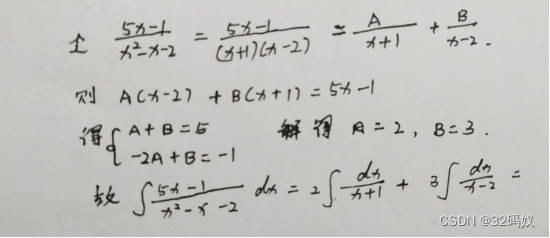 1. (5x-1)/(x²-x-2) = (5x-1)/((x+1)(x-2)) = A/(x+1) + B/(x-2).
则 A(x-2) + B(x+1) = 5x-1
得{ A+B=5 解得 A=2, B=3.
-2A+B=-1
故 ∫(5x-1)/(x²-x-2) dx = 2∫dx/(x+1) + 3∫dx/(x-2) =
CSDN @32码奴